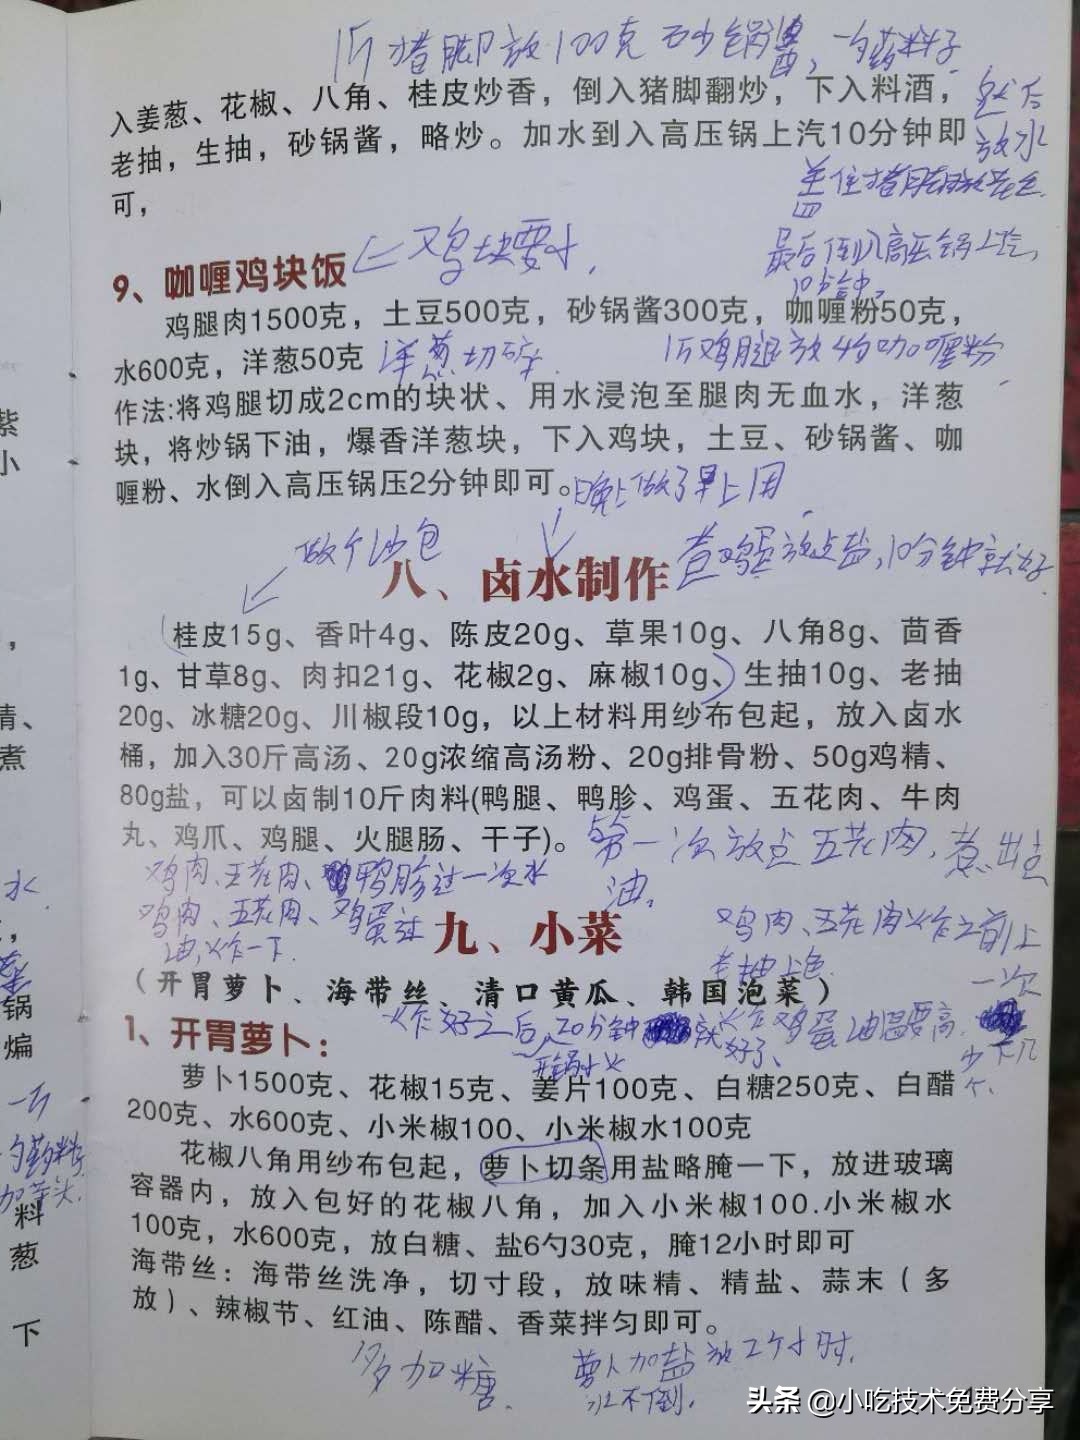 1斤猪脚放100克砂锅酱，一勺药料子
入姜葱、花椒、八角、桂皮炒香，倒入猪脚翻炒，下入料酒，
然后
老抽，生抽，砂锅酱，略炒。加水到入高压锅上汽10分钟即
放水
可，
盖住猪脚
最后倒入高压锅上汽，
10分钟。
9、咖喱鸡块饭
鸡块要小，
鸡腿肉1500克，土豆500克，砂锅酱300克，咖喱粉50克，
水600克，洋葱50克
洋葱切碎
1斤鸡腿放4勺咖喱粉
作法:将鸡腿切成2cm的块状、用水浸泡至腿肉无血水，洋葱
块，将炒锅下油，爆香洋葱块，下入鸡块，土豆、砂锅酱、咖
喱粉、水倒入高压锅压2分钟即可。
晚上做了早上用
做个沙包
煮鸡蛋放点盐，10分钟就好
八、卤水制作
桂皮15g、香叶4g、陈皮20g、草果10g、八角8g、茴香
1g、甘草8g、肉扣21g、花椒2g、麻椒10g、生抽10g、老抽
20g、冰糖20g、川椒段10g，以上材料用纱布包起，放入卤水
桶，加入30斤高汤、20g浓缩高汤粉、20g排骨粉、50g鸡精、
80g盐，可以卤制10斤肉料(鸭腿、鸭胗、鸡蛋、五花肉、牛肉
丸、鸡爪、鸡腿、火腿肠、干子)。
第一次放点五花肉，煮出点
油。
鸡肉、五花肉、鸭胗过一次水
鸡肉、五花肉、鸡蛋过
油，炸一下.
九、小菜
鸡肉、五花肉炸之前上
老抽上色
一次
(开胃萝卜、海带丝、清口黄瓜、韩国泡菜)
炸好之后，20分钟就好了、
开锅小火
炸鸡蛋油温要高，
少下几
个.
1、开胃萝卜：
萝卜1500克、花椒15克、姜片100克、白糖250克、白醋
200克、水600克、小米椒100、小米椒水100克
花椒八角用纱布包起，萝卜切条用盐略腌一下，放进玻璃
容器内，放入包好的花椒八角，加入小米椒100.小米椒水
100克，水600克，放白糖、盐6勺30克，腌12小时即可
海带丝：海带丝洗净，切寸段，放味精、精盐、蒜末（多
放）、辣椒节、红油、陈醋、香菜拌匀即可。
多加糖.
萝卜加盐放2个小时.
水不倒.
紫
小
，
精、
煮
水
，
菜
锅
煸
一斤
勺药料子
加芋头.
料
葱
下
头条 @小吃技术免费分享